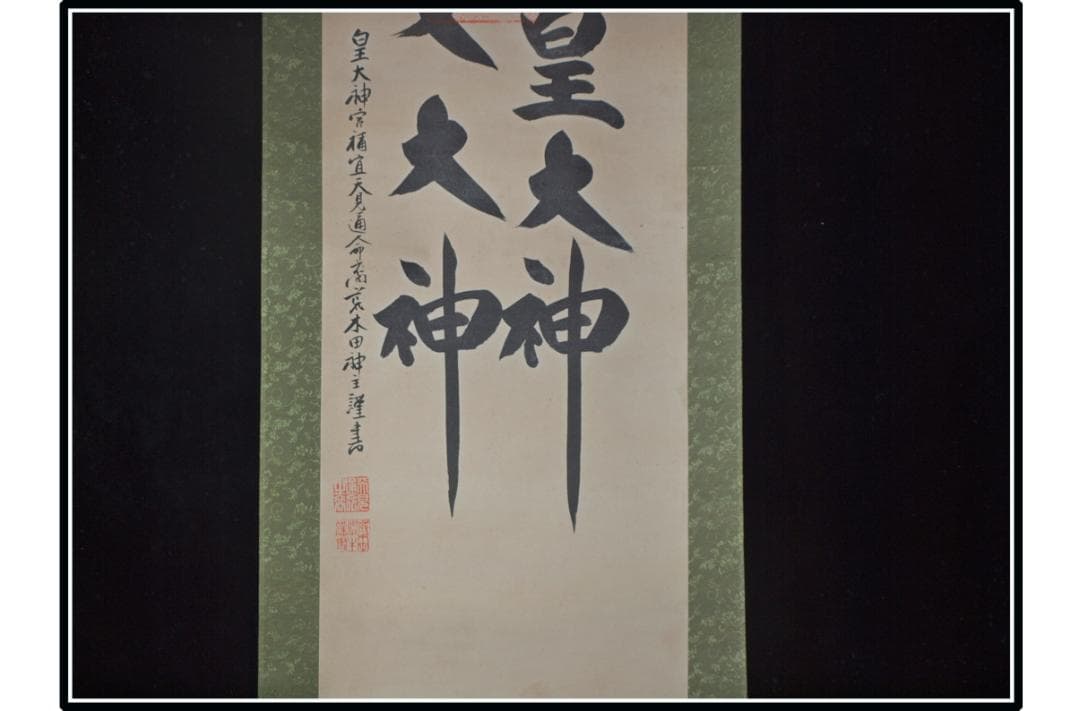 皇大神
大神
皇大神宮禰宜天見通命裔荒木田神主謹書